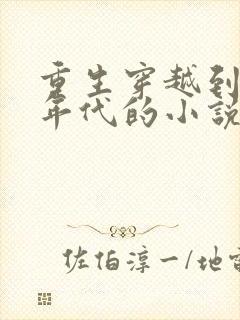 重生穿越到
年代的小説
佐伯淳一/地